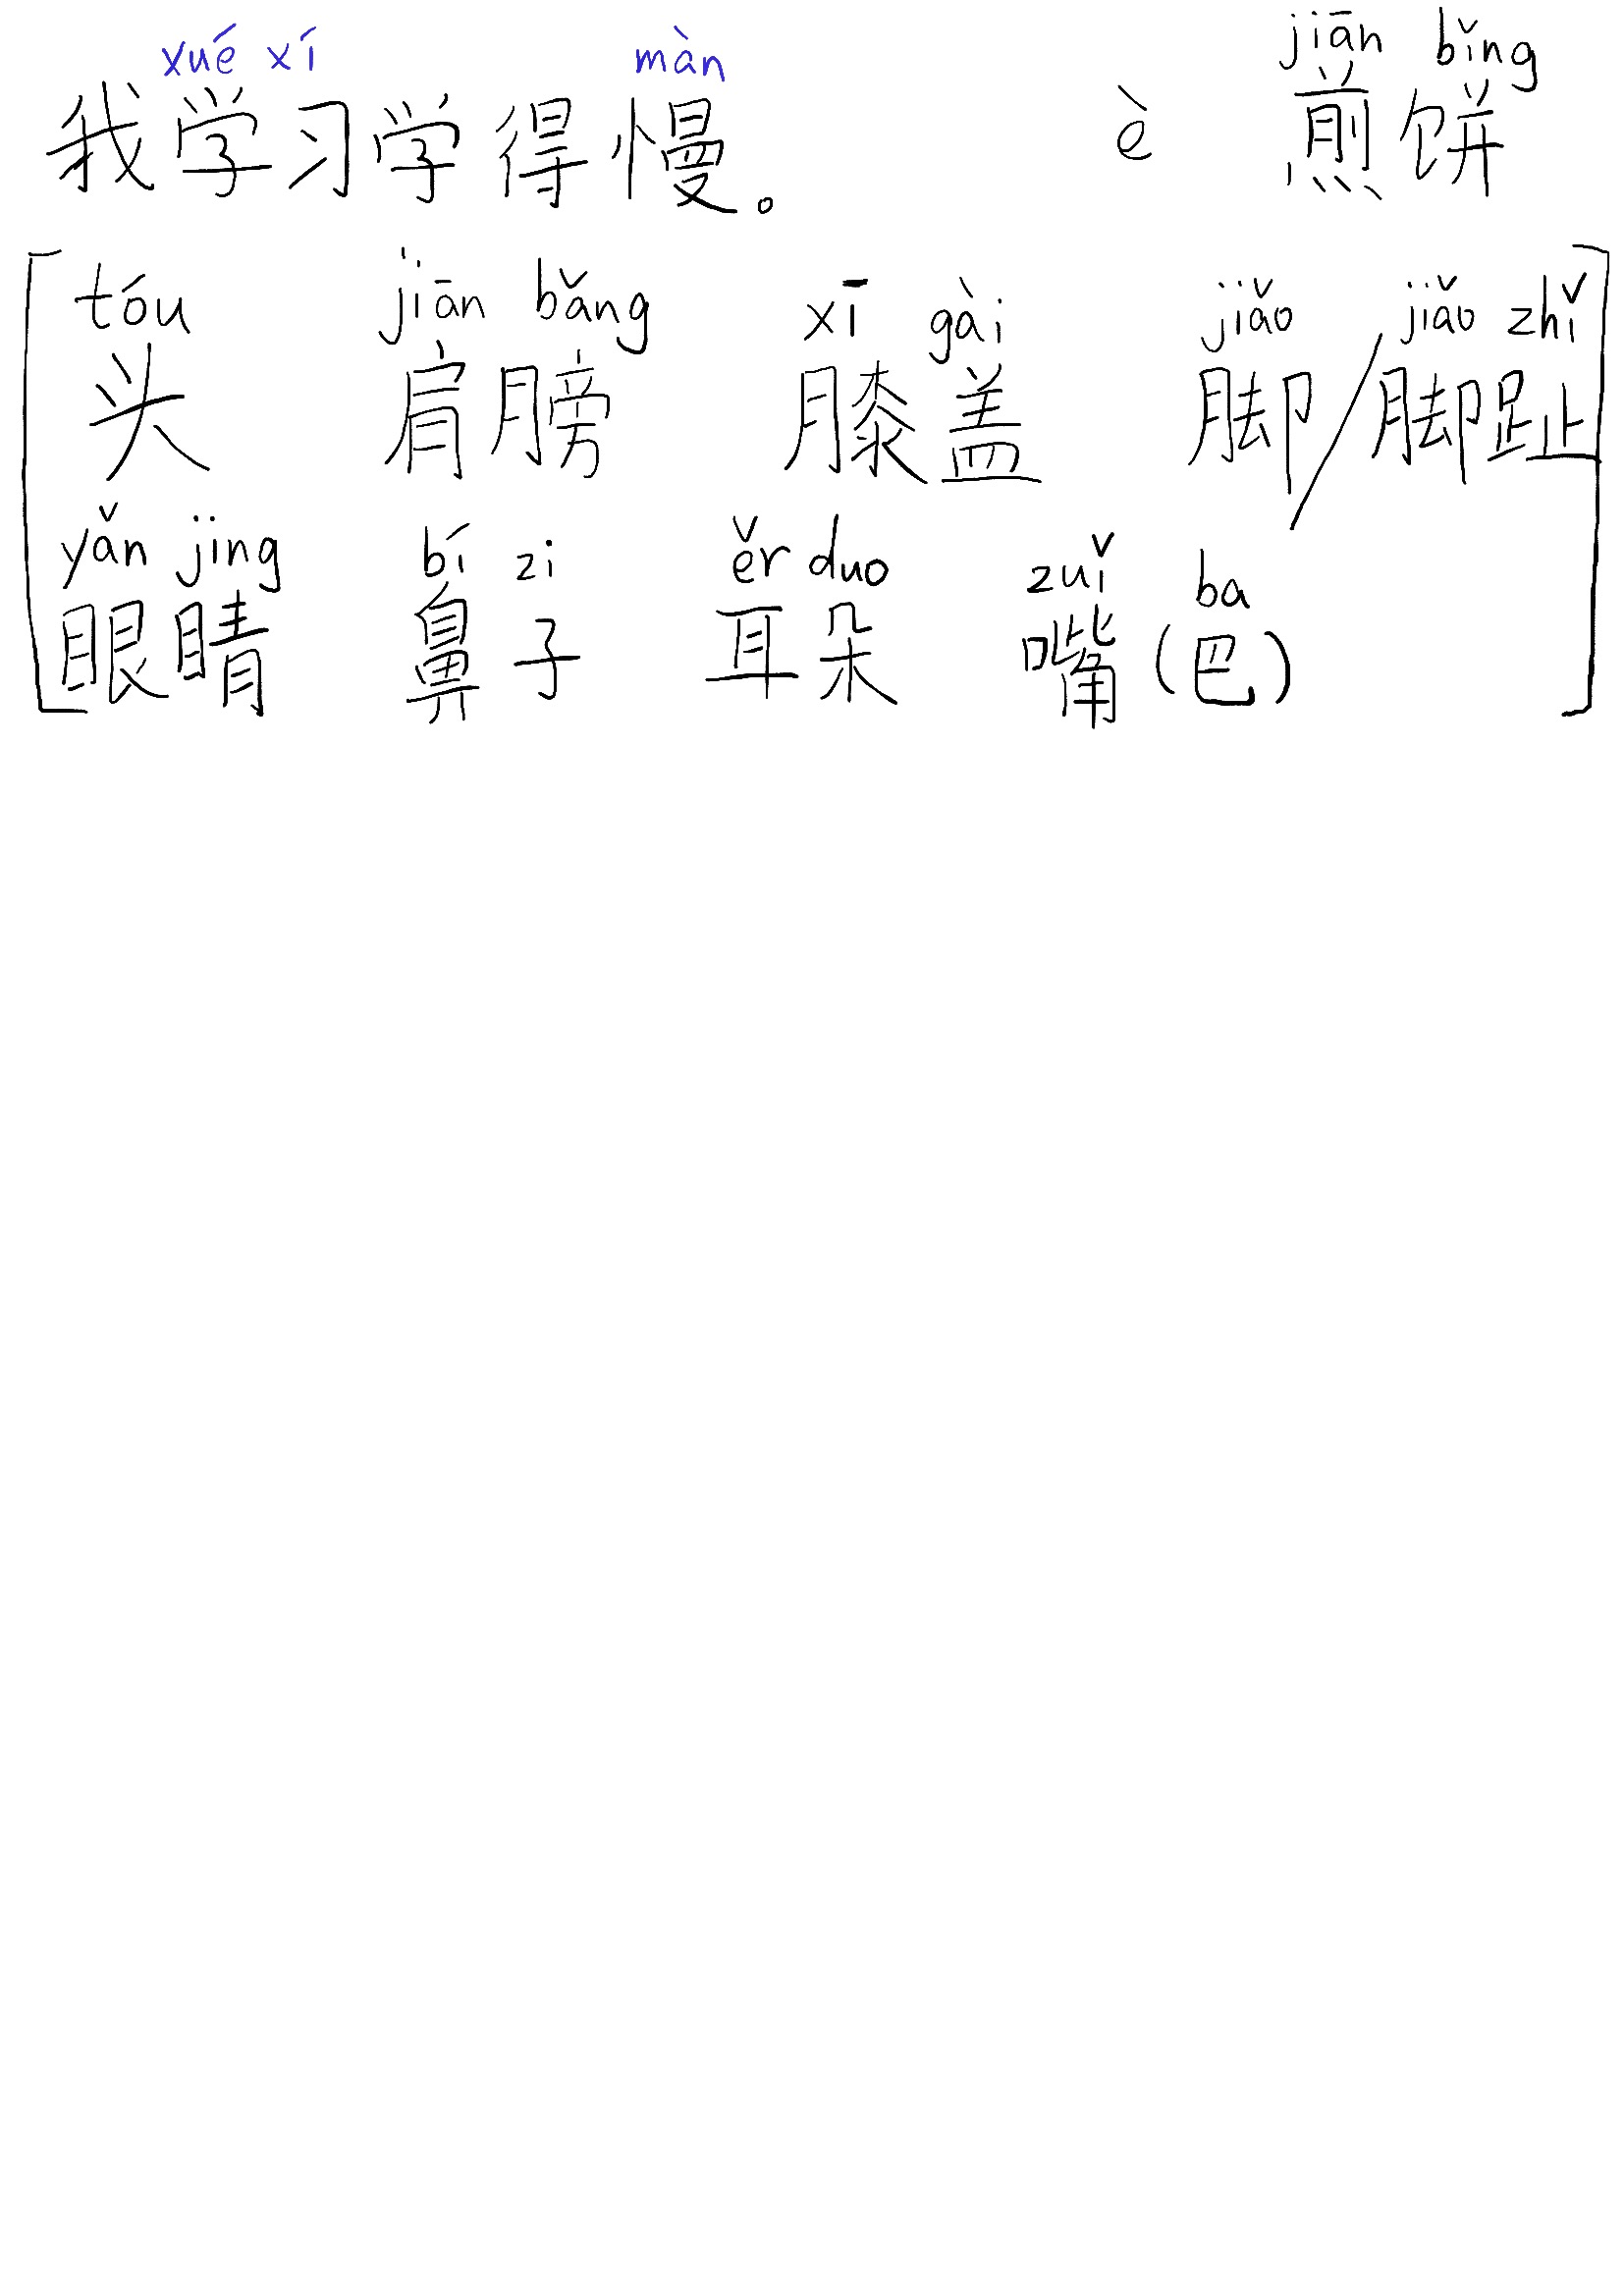 xué xí màn jiān bǐng
我学习学得慢。 è 煎饼
tóu jiān bǎng xī gài jiǎo jiǎo zhǐ
头 肩膀 膝盖 脚/脚趾
yǎn jing bí zi ěr duo zuǐ ba
眼睛 鼻子 耳朵 嘴(巴)